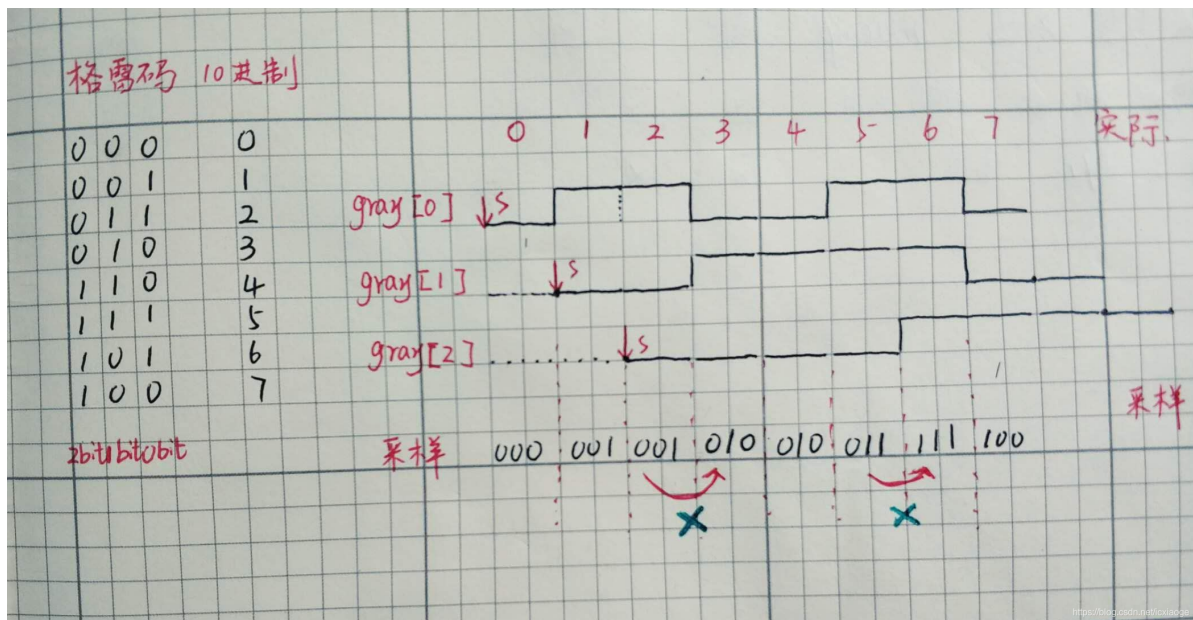 格雷码 10进制
0 0 0 0
0 0 1 1
0 1 1 2
0 1 0 3
1 1 0 4
1 1 1 5
1 0 1 6
1 0 0 7
2bit1bit0bit
0 1 2 3 4 5 6 7 实际
gray[0] S
gray[1] S
gray[2] S
采样
采样 000 001 001 010 010 011 111 100
https://blog.csdn.net/icxiaoge